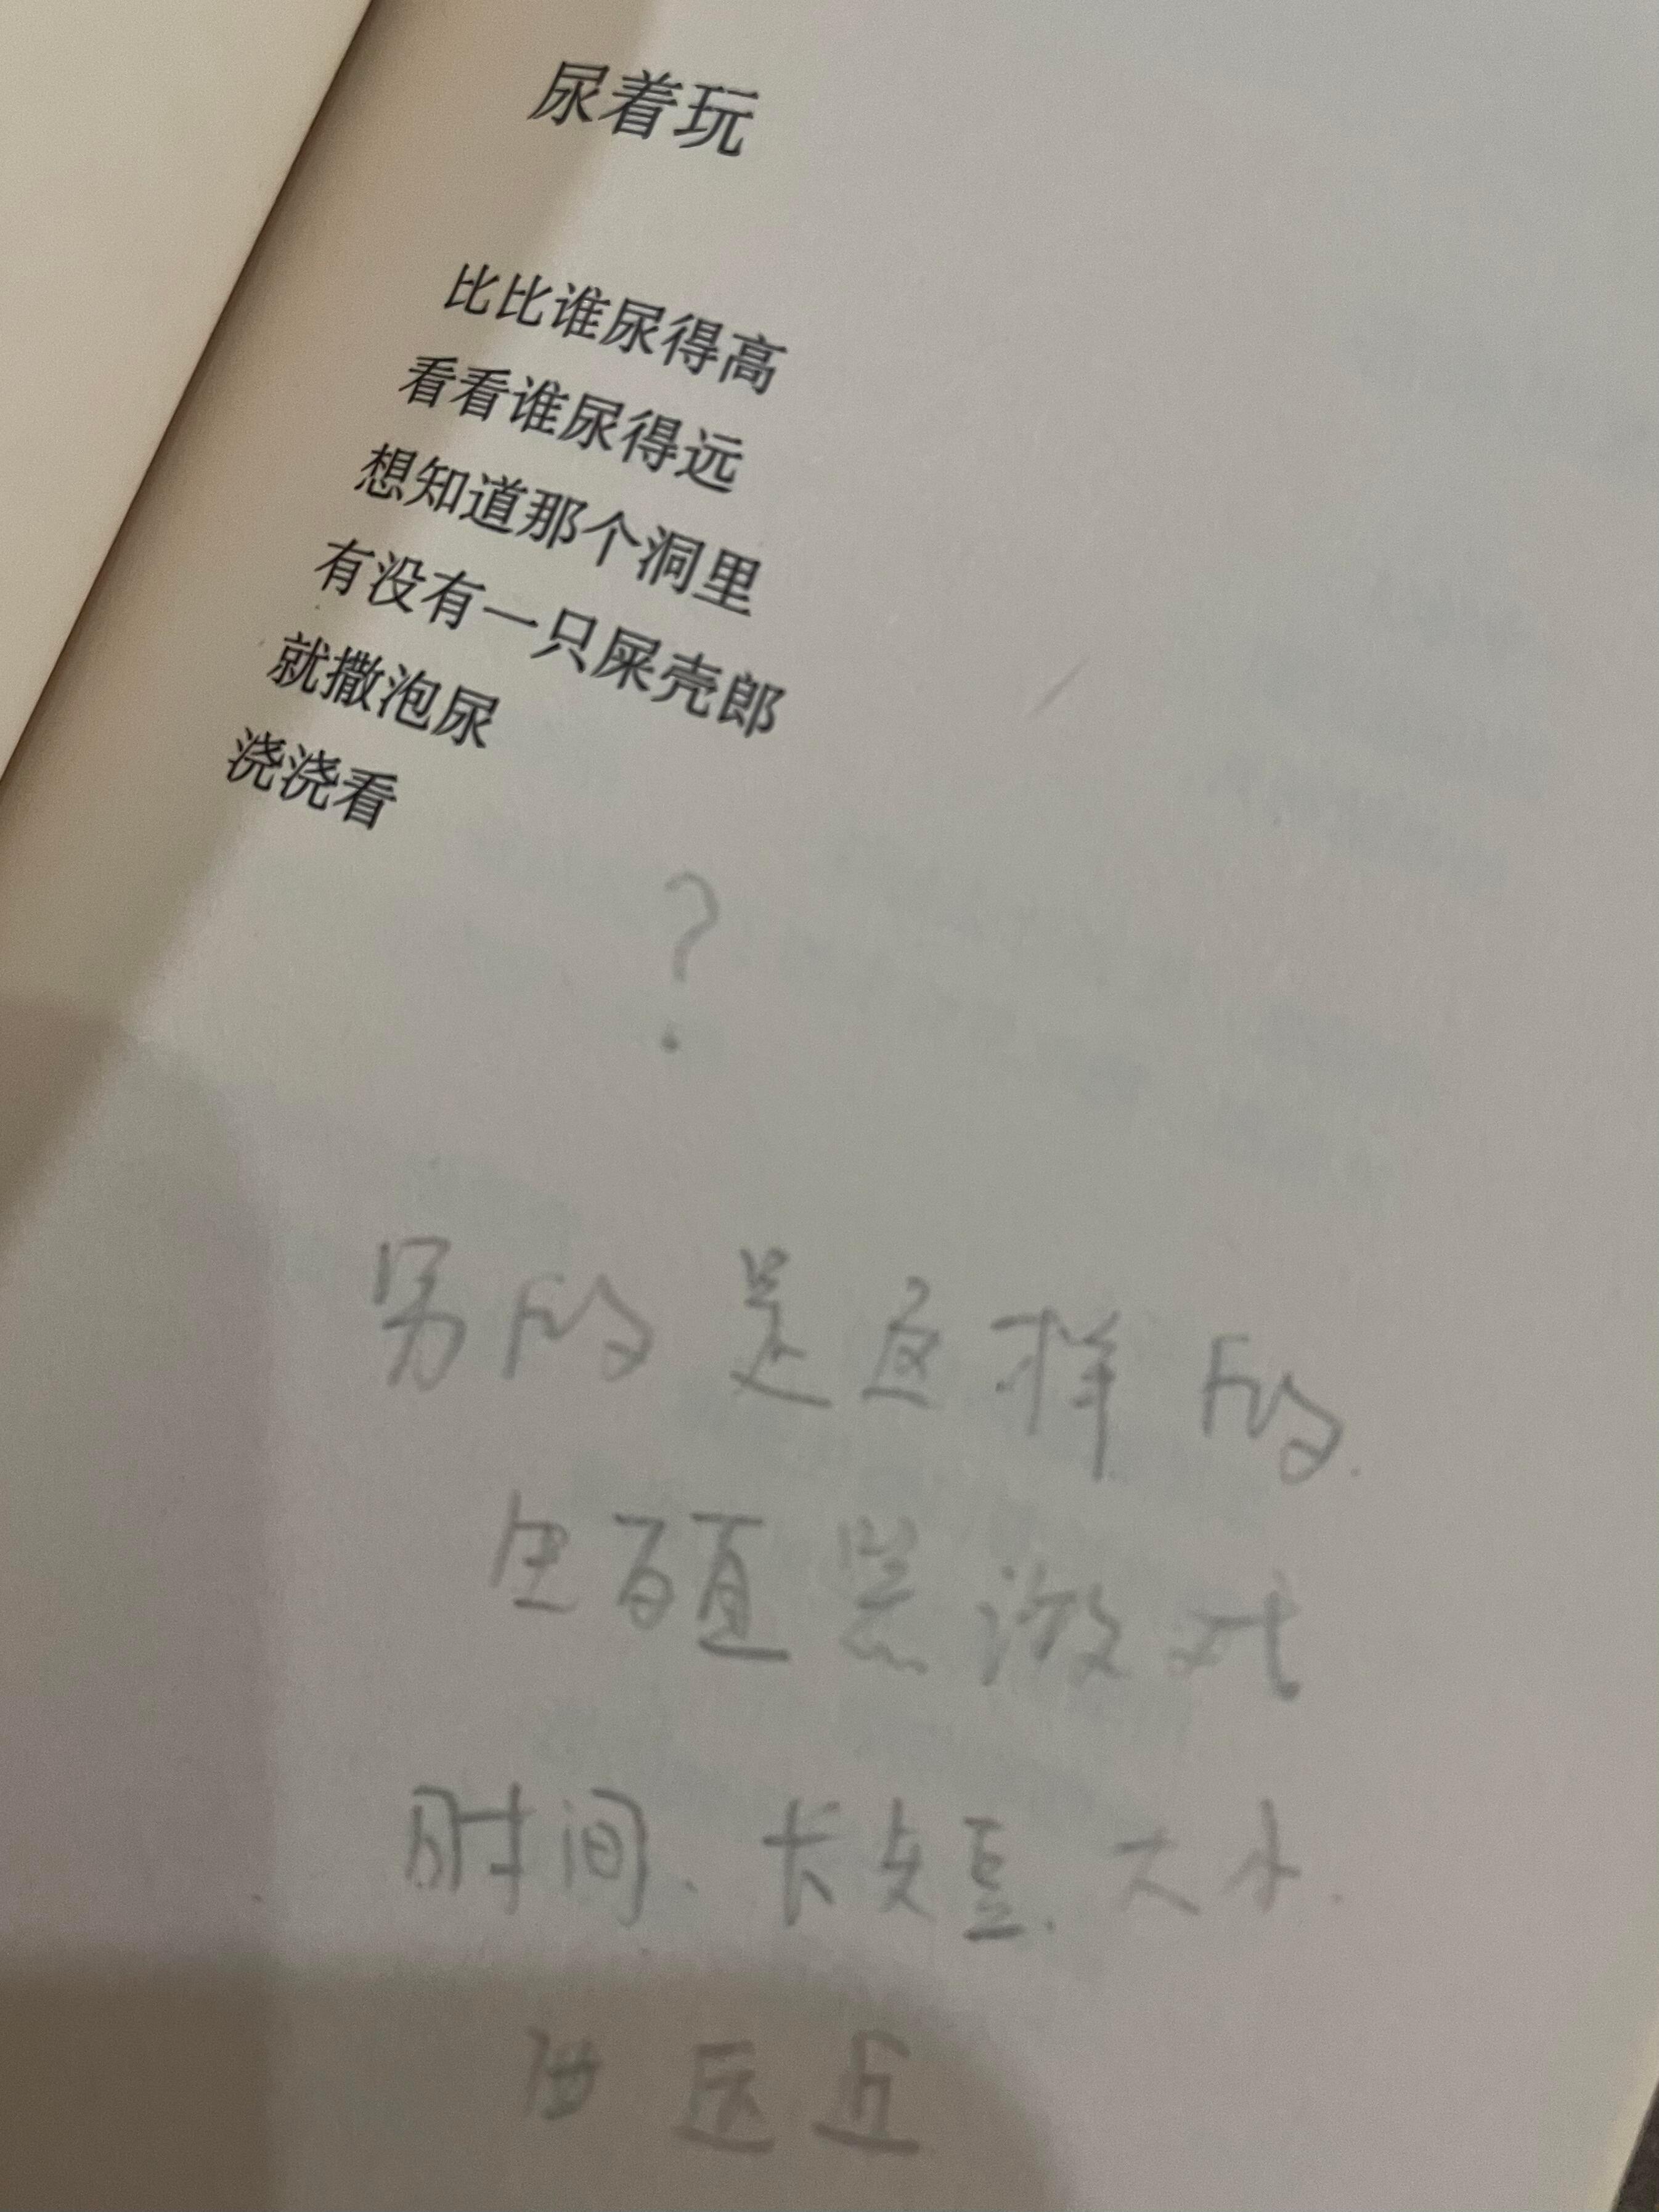 尿着玩
比比谁尿得高
看看谁尿得远
想知道那个洞里
有没有一只屎壳郎
就撒泡尿
浇浇看
?
男的是这样的.
生殖器游戏
时间、长短、大小.
远近